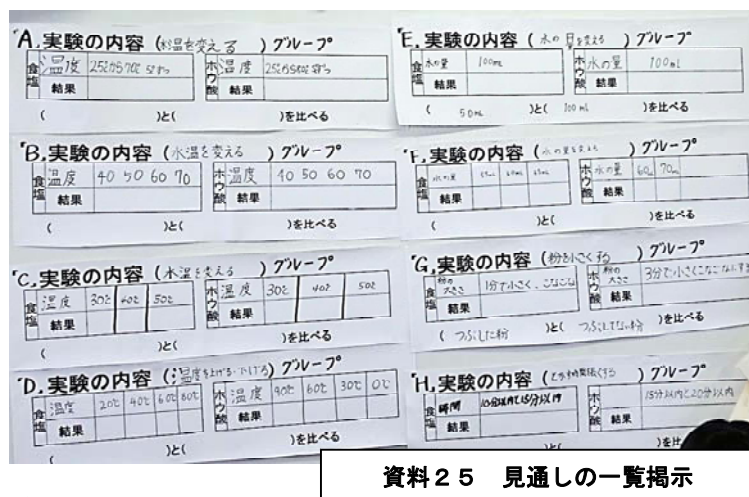 A.実験の内容 (水温を変える ) グループ
食塩 温度 25℃から70℃ 5℃ずつ ホウ酸 温度
結果 結果
( )と( )を比べる
B.実験の内容 (水温を変える ) グループ
食塩 温度 40 50 60 70 ホウ酸 温度 40 50 60 70
結果 結果
( )と( )を比べる
C.実験の内容 (水温を変える ) グループ
食塩 温度 30℃ 40℃ 50℃ ホウ酸 温度 30℃ 40℃ 50℃
結果 結果
( )と( )を比べる
D.実験の内容 (温度を上げる・下げる) グループ
食塩 温度 20℃ 40℃ 60℃ 80℃ ホウ酸 温度 90℃ 60℃ 30℃ 0℃
結果 結果
( )と( )を比べる
E.実験の内容 (水の量を変える ) グループ
食塩 水の量 100mL ホウ酸 水の量 100mL
結果 結果
( 50mL )と( 100mL )を比べる
F.実験の内容 (水の量を変える ) グループ
食塩 水の量 ホウ酸 水の量 60mL 70mL
結果 結果
( )と( )を比べる
G.実験の内容 (粉を小さくする ) グループ
食塩 粉の大きさ 1分で小さく、こなごな ホウ酸 粉の大きさ 3分で小さくこなごなにする
結果 結果
( つぶした粉 )と( つぶしてない粉 )を比べる
H.実験の内容 ( ) グループ
食塩 時間 10分以内と15分以内 ホウ酸 15分以内と20分以内
結果 結果
( )と( )を比
資料25 見通しの一覧掲示